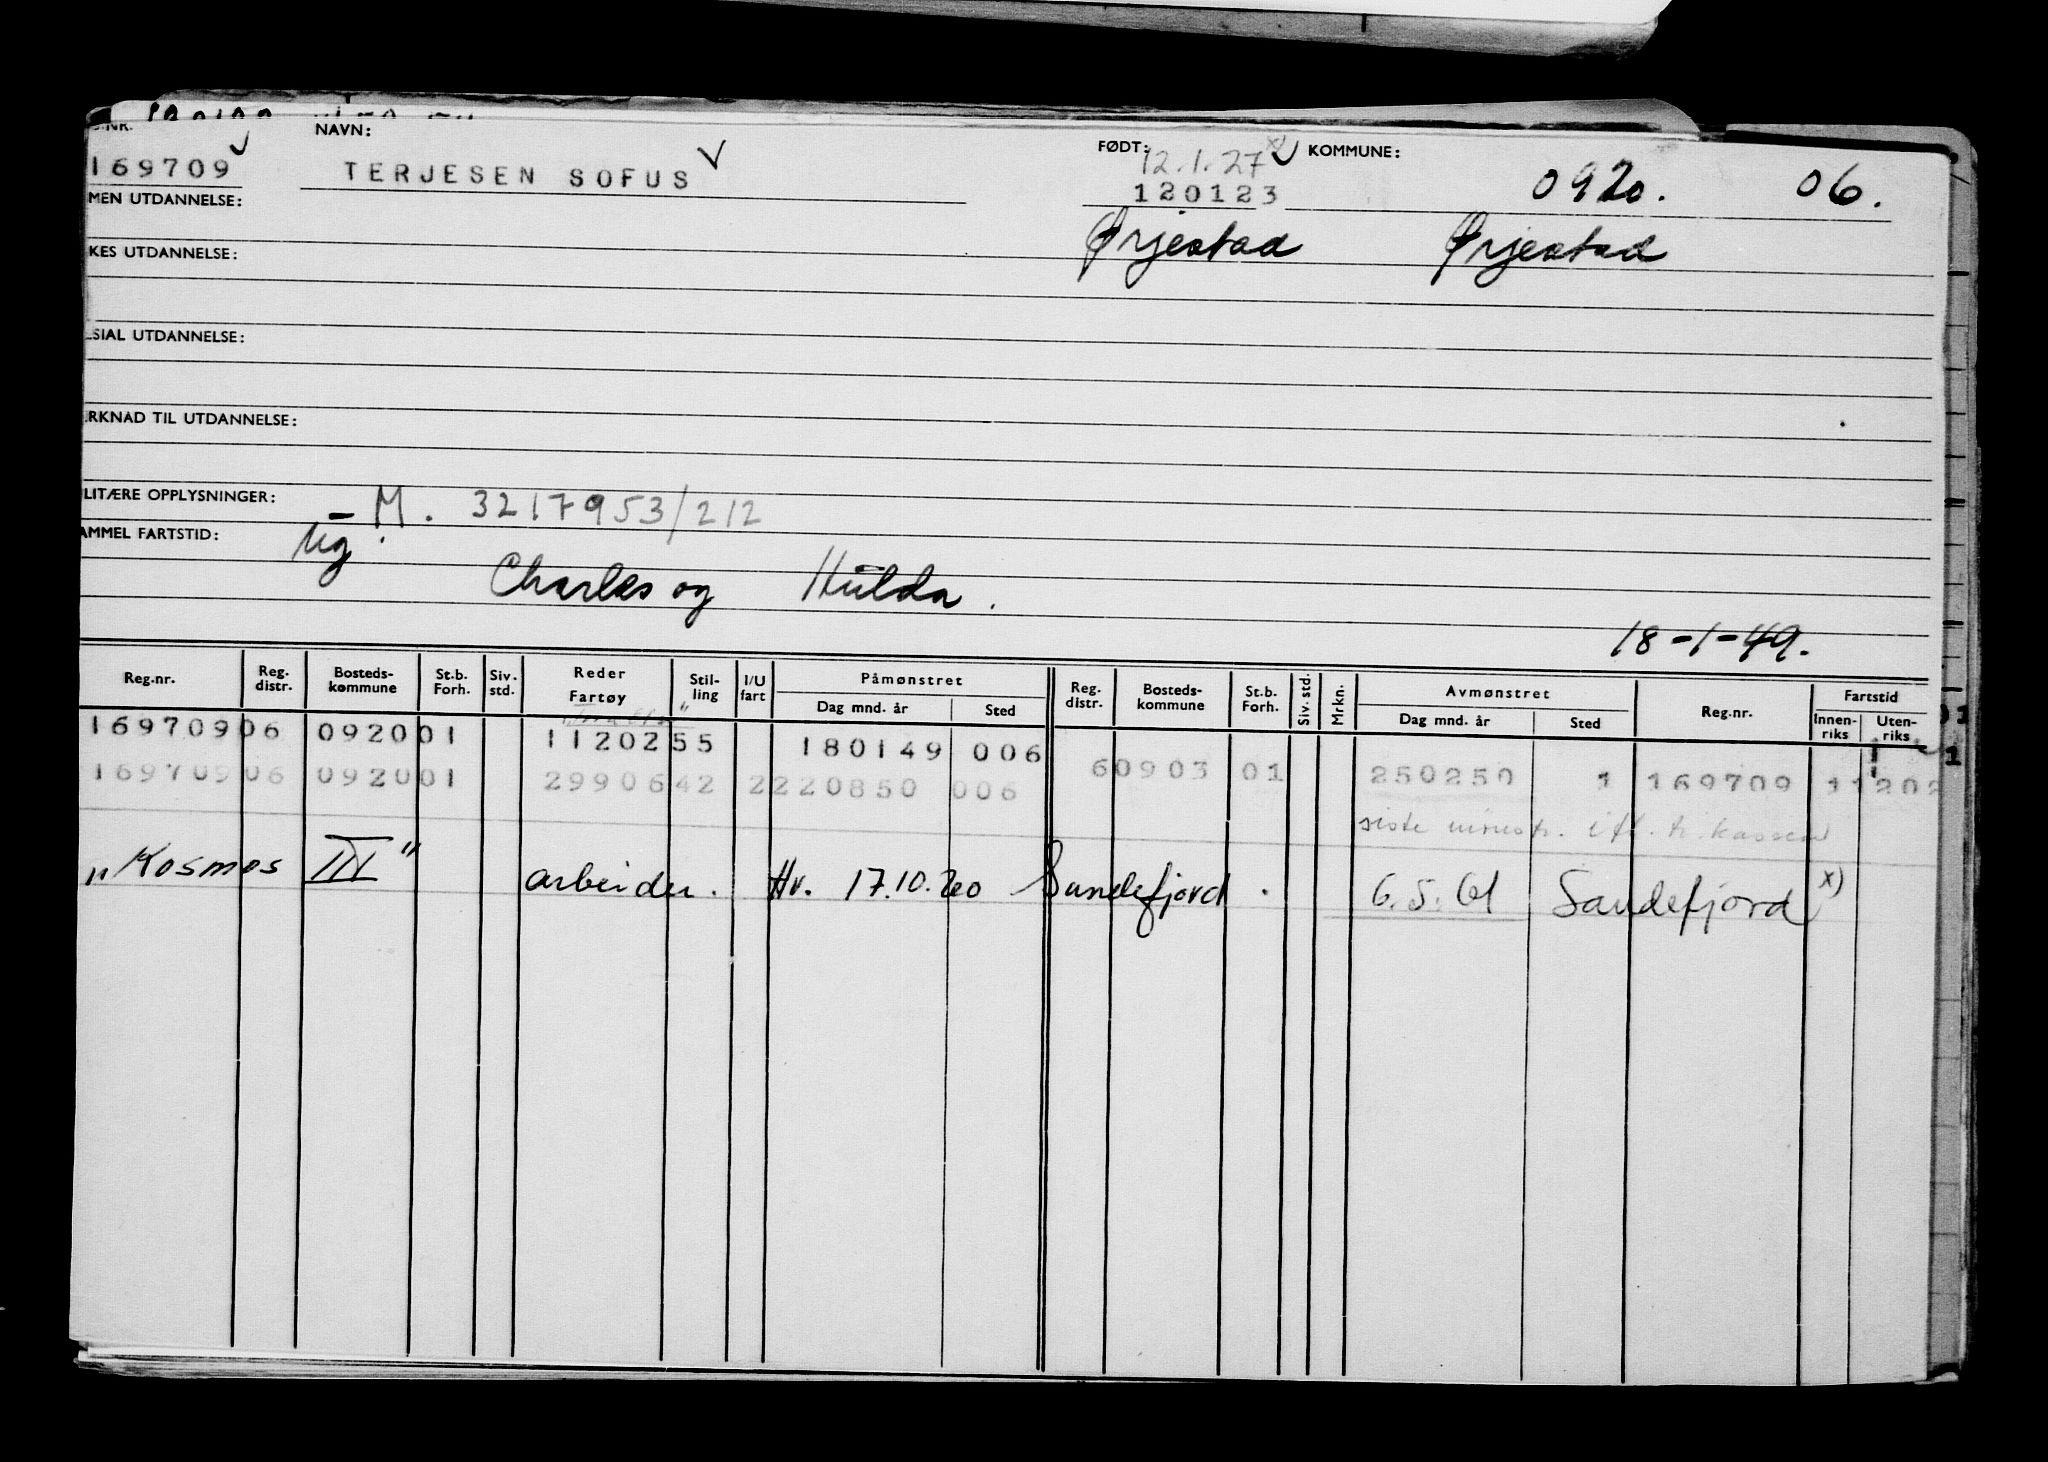 NAVN:
FØDT: 12.1.27 x)
KOMMUNE:
169709
TERJESEN SOFUS
120123
0920. 06.
MEN UTDANNELSE:
Øyestad Øyestad
KES UTDANNELSE:
SIAL UTDANNELSE:
RKNAD TIL UTDANNELSE:
LITÆRE OPPLYSNINGER: M. 3217953/212
AMMEL FARTSTID: Ug.
Charles og Hulda.
18-1-49.
Reg.nr. Reg. distr. Bosteds-kommune St.b. Forh. Siv. std. Reder Fartøy Stil-ling I/U fart Påmønstret Dag mnd. år Sted Reg. distr. Bosteds-kommune St.b. Forh. Siv. std. Mrkn. Avmønstret Dag mnd. år Sted Reg.nr. Fartstid Innen-riks Uten-riks
169709 06 0920 01 11202 55 180149 006
169709 06 0920 01 29906 42 2 220850 006 60903 01 250250 1 169709 11202
siste mønstr. ifl. tr.kassen
"Kosmos III" arbeider. Hv. 17.10.60 Sandefjord. 6.5.61 Sandefjord x)